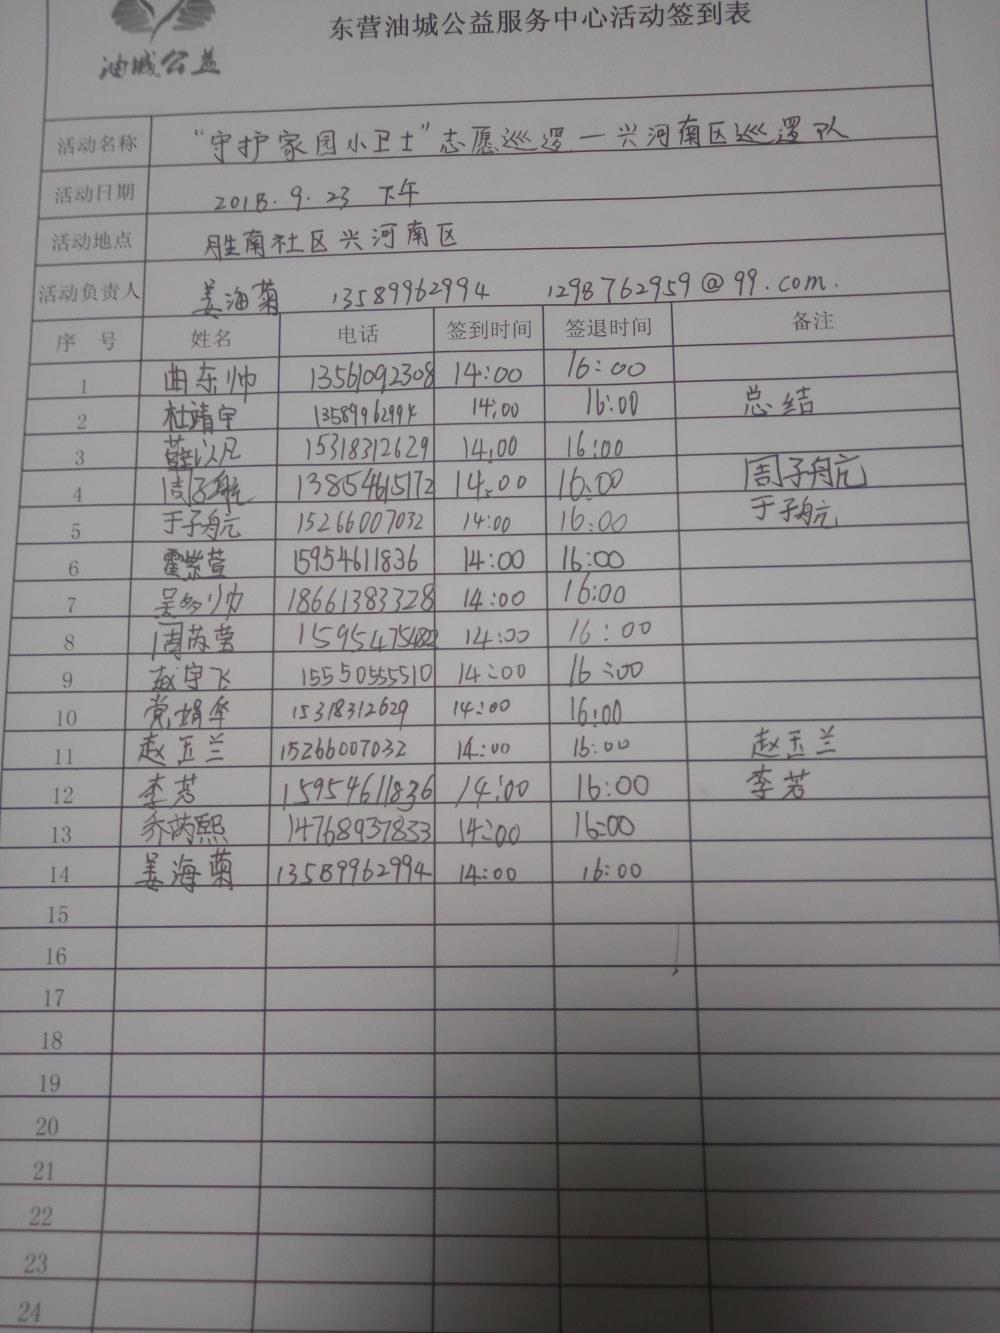 油城公益
东营油城公益服务中心活动签到表
活动名称 “守护家园小卫士”志愿巡逻—兴河南区巡逻队
活动日期 2018.9.23 下午
活动地点 胜南社区兴河南区
活动负责人 姜海菊 13589962994 1298762959@99.com.
序号 姓名 电话 签到时间 签退时间 备注
1 曲东帅 13561092308 14:00 16:00
2 杜靖宇 13589962994 14:00 16:00 总结
3 薛以凡 15318312629 14:00 16:00
4 周子航 13854615172 14:00 16:00 周子航
5 于子航 15266007032 14:00 16:00 于子航
6 霍紫萱 15954611836 14:00 16:00
7 18661383328 14:00 16:00
8 周芮莹 14:00 16:00
9 赵宇飞 15550555510 14:00 16:00
10 党娟华 15318312629 14:00 16:00
11 赵玉兰 15266007032 14:00 16:00 赵玉兰
12 李芳 15954611836 14:00 16:00 李芳
13 乔芮熙 14768937833 14:00 16:00
14 姜海菊 13589962994 14:00 16:00
15
16
17
18
19
20
21
22
23
24